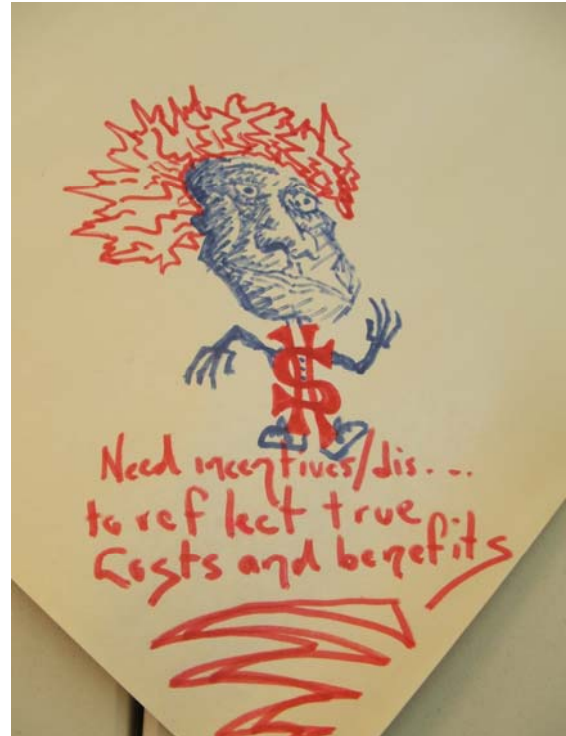 $
Need incentives/dis...
to reflect true
Costs and benefits